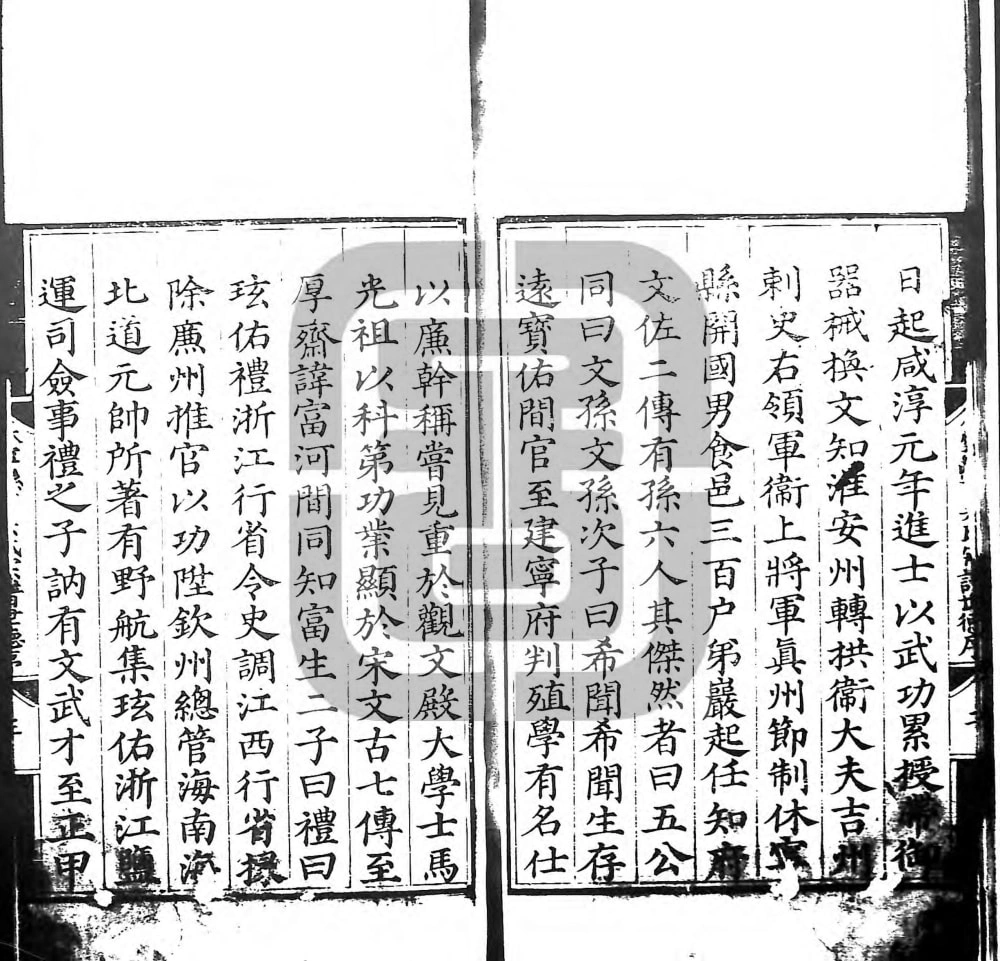 日起咸淳元年進士以武功累授帶御
器械換文知淮安州轉拱衞大夫吉州
刺史右領軍衞上將軍眞州節制休寧
縣開國男食邑三百户弟巖起任知府
文佐二傳有孫六人其傑然者曰五公
同曰文孫文孫次子曰希聞希聞生存
遠寶佑間官至建寧府判殖學有名仕
以廉幹稱嘗見重於觀文殿大學士馬
光祖以科第功業顯於宋文古七傳至
厚齋諱富河間同知富生二子曰禮曰
玹佑禮浙江行省令史調江西行省掾
除廉州推官以功陞欽州總管海南海
北道元帥所著有野航集玹佑浙江鹽
運司僉事禮之子訥有文武才至正甲